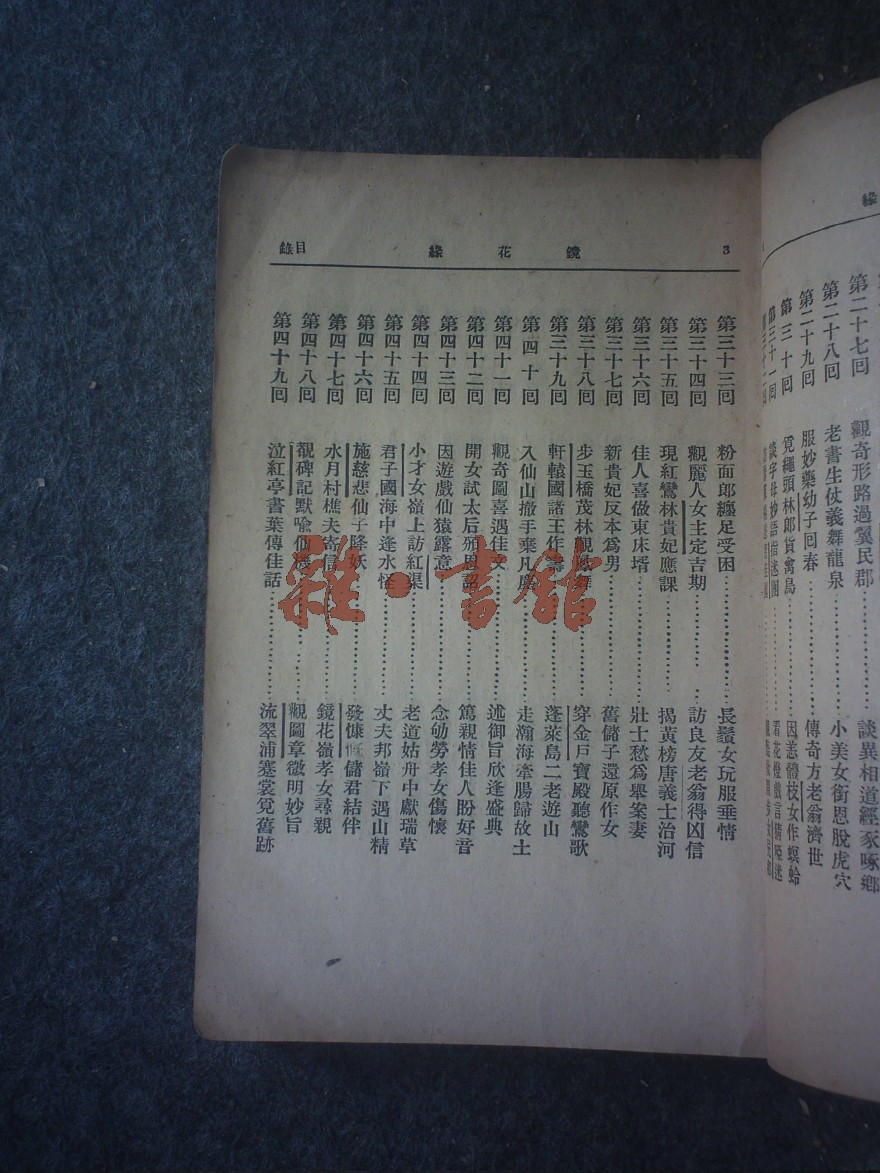 3 鏡花緣 目錄
第三十三回 粉面郎纏足受困 長鬚女玩服垂情
第三十四回 觀麗人女主定吉期 訪良友老翁得凶信
第三十五回 現紅鸞林貴妃應課 揭黃榜唐義士治河
第三十六回 佳人喜做東床壻 壯士愁爲舉案妻
第三十七回 新貴妃反本爲男 舊儲子還原作女
第三十八回 步玉橋茂林觀鳳舞 穿金戶寶殿聽鸞歌
第三十九回 軒轅國諸王作壽 蓬萊島二老遊山
第四十回 入仙山撤手棄凡塵 走瀚海牽腸歸故土
第四十一回 觀奇圖喜遇佳文 述御旨欣逢盛典
第四十二回 開女試太后頒恩詔 篤親情佳人盼好音
第四十三回 因遊戲仙猿露意 念劬勞孝女傷懷
第四十四回 小才女嶺上訪紅蕖 老道姑舟中獻瑞草
第四十五回 君子國海中逢水怪 丈夫邦嶺下遇山精
第四十六回 施慈悲仙子降妖 發慷慨儲君結伴
第四十七回 水月村樵夫寄信 鏡花嶺孝女尋親
第四十八回 覩碑記默喻仙機 觀圖章微明妙旨
第四十九回 泣紅亭書葉傳佳話 流翠浦蹇裳覓舊跡
雜·書館
緣
第二十七回 觀奇形路過翼民郡 談異相道經豕啄鄉
第二十八回 老書生仗義舞龍泉 小美女銜恩脫虎穴
第二十九回 服妙藥幼子回春 傳奇方老翁濟世
第三十回 覓蠅頭林郎貨禽鳥 因恙體枝女作螟蛉
第三十一回 談字母妙語指迷團 看花燈戲言猜啞迷